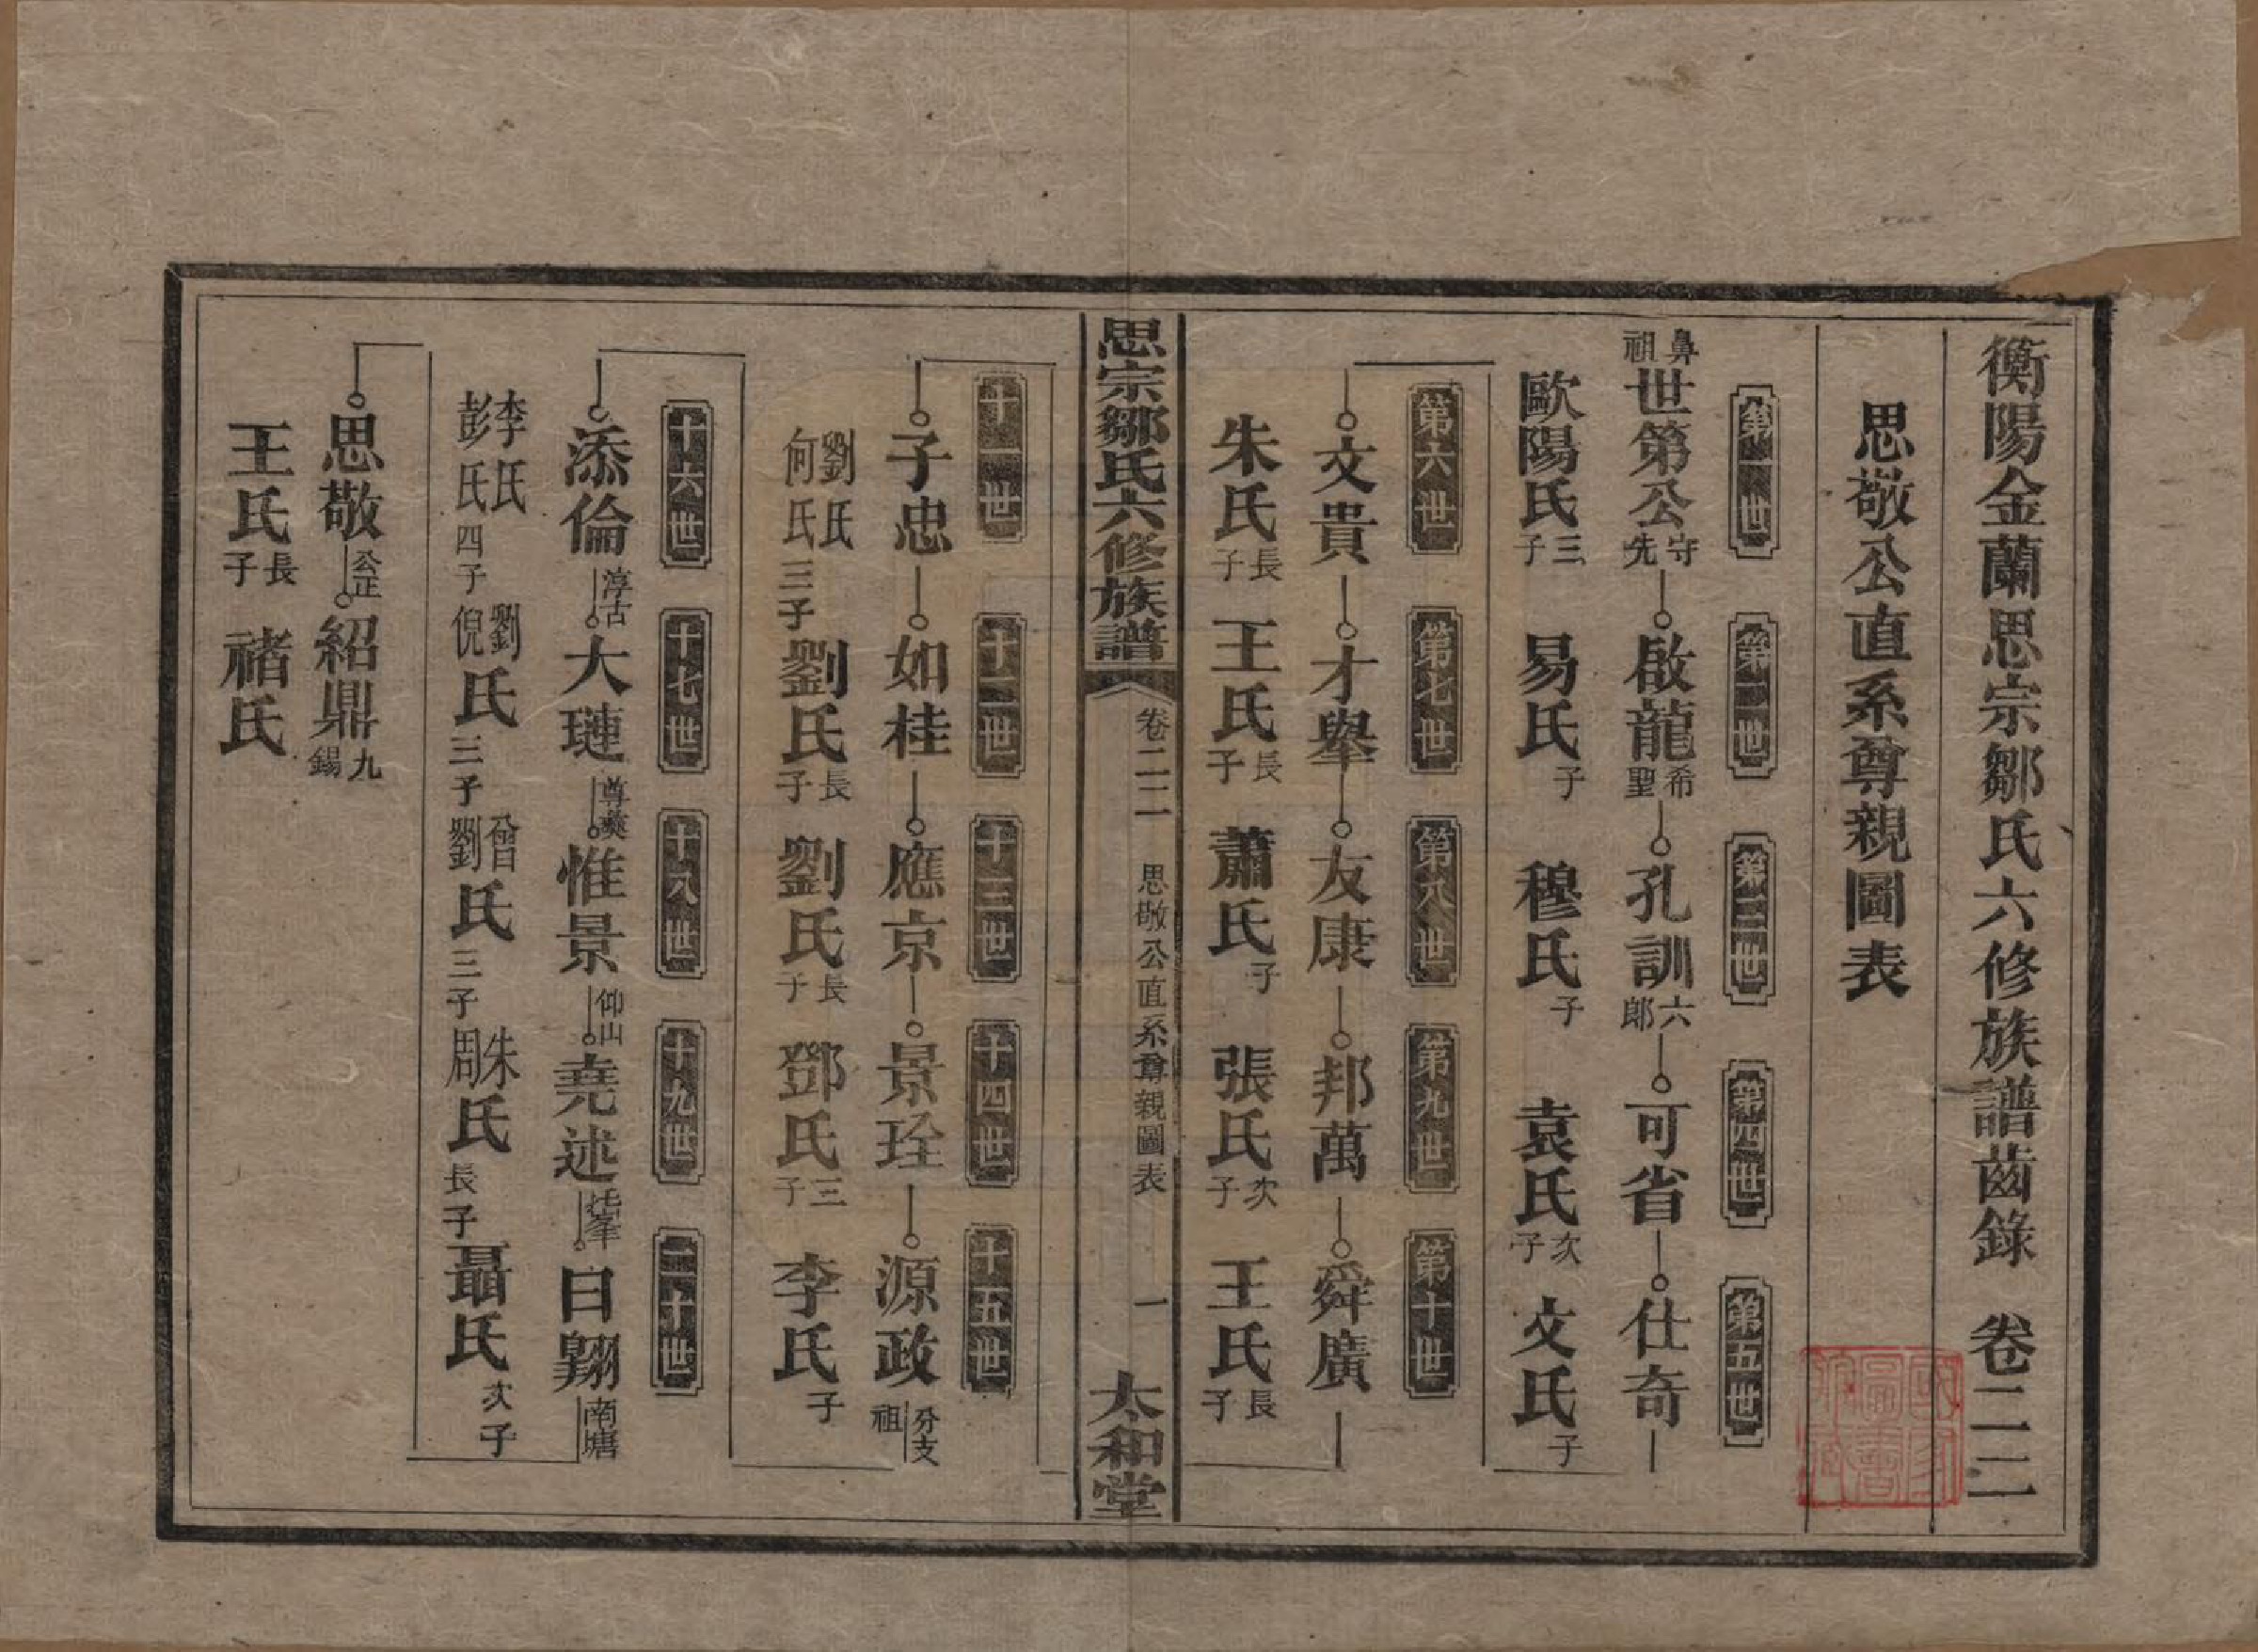 衡陽金蘭思宗鄒氏六修族譜齒錄　卷二二
思敬公直系尊親圖表
第一世　第二世　第三世　第四世　第五世
鼻祖　世第公　守先　啟龍　希聖　孔訓　六郎　可省　仕奇
歐陽氏　三子　易氏　子　穆氏　子　袁氏　次子　文氏　子
第六世　第七世　第八世　第九世　第十世
文貴　才舉　友康　邦萬　舜廣
朱氏　長子　王氏　長子　蕭氏　子　張氏　次子　王氏　長子
思宗鄒氏六修族譜　卷二二　思敬公直系尊親圖表　一　太和堂
十一世　十二世　十三世　十四世　十五世
子忠　如桂　應京　景珄　源政　分支祖
劉氏　何氏　三子　劉氏　長子　劉氏　長子　鄧氏　三子　李氏　子
十六世　十七世　十八世　十九世　二十世
添倫　淳古　大璉　尊彝　惟景　仰山　堯述　日翱　南塘
李氏　彭氏　四子　劉倪氏　三子　曾劉氏　三子　朱周氏　長子　聶氏　次子
思敬　紹鼎　九錫
王氏　長子　禇氏